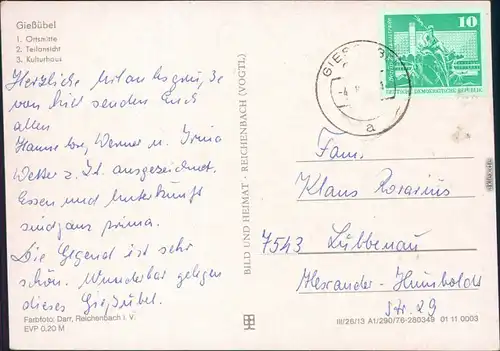 Gießübel
1. Ortsmitte
2. Teilansicht
3. Kulturhaus
Herzliche Urlaubsgrüße
von hier senden Euch
allen
Hannelore, Werner u. Irina
Wetter z. Zt. ausgezeichnet.
Essen und Unterkunft
sind ganz prima.
Die Gegend ist sehr
schön. Wunderbar gelegen
dieses Gießübel.
Farbfoto: Darr, Reichenbach i. V.
EVP 0,20 M
BILD UND HEIMAT · REICHENBACH (VOGTL)
10
DEUTSCHE DEMOKRATISCHE REPUBLIK
a
Fam.
Klaus Rosarius
7543 Lübbenau
Alexander-Humboldt
Str. 29
III/26/13 A1/290/76-280349 01 11 0003